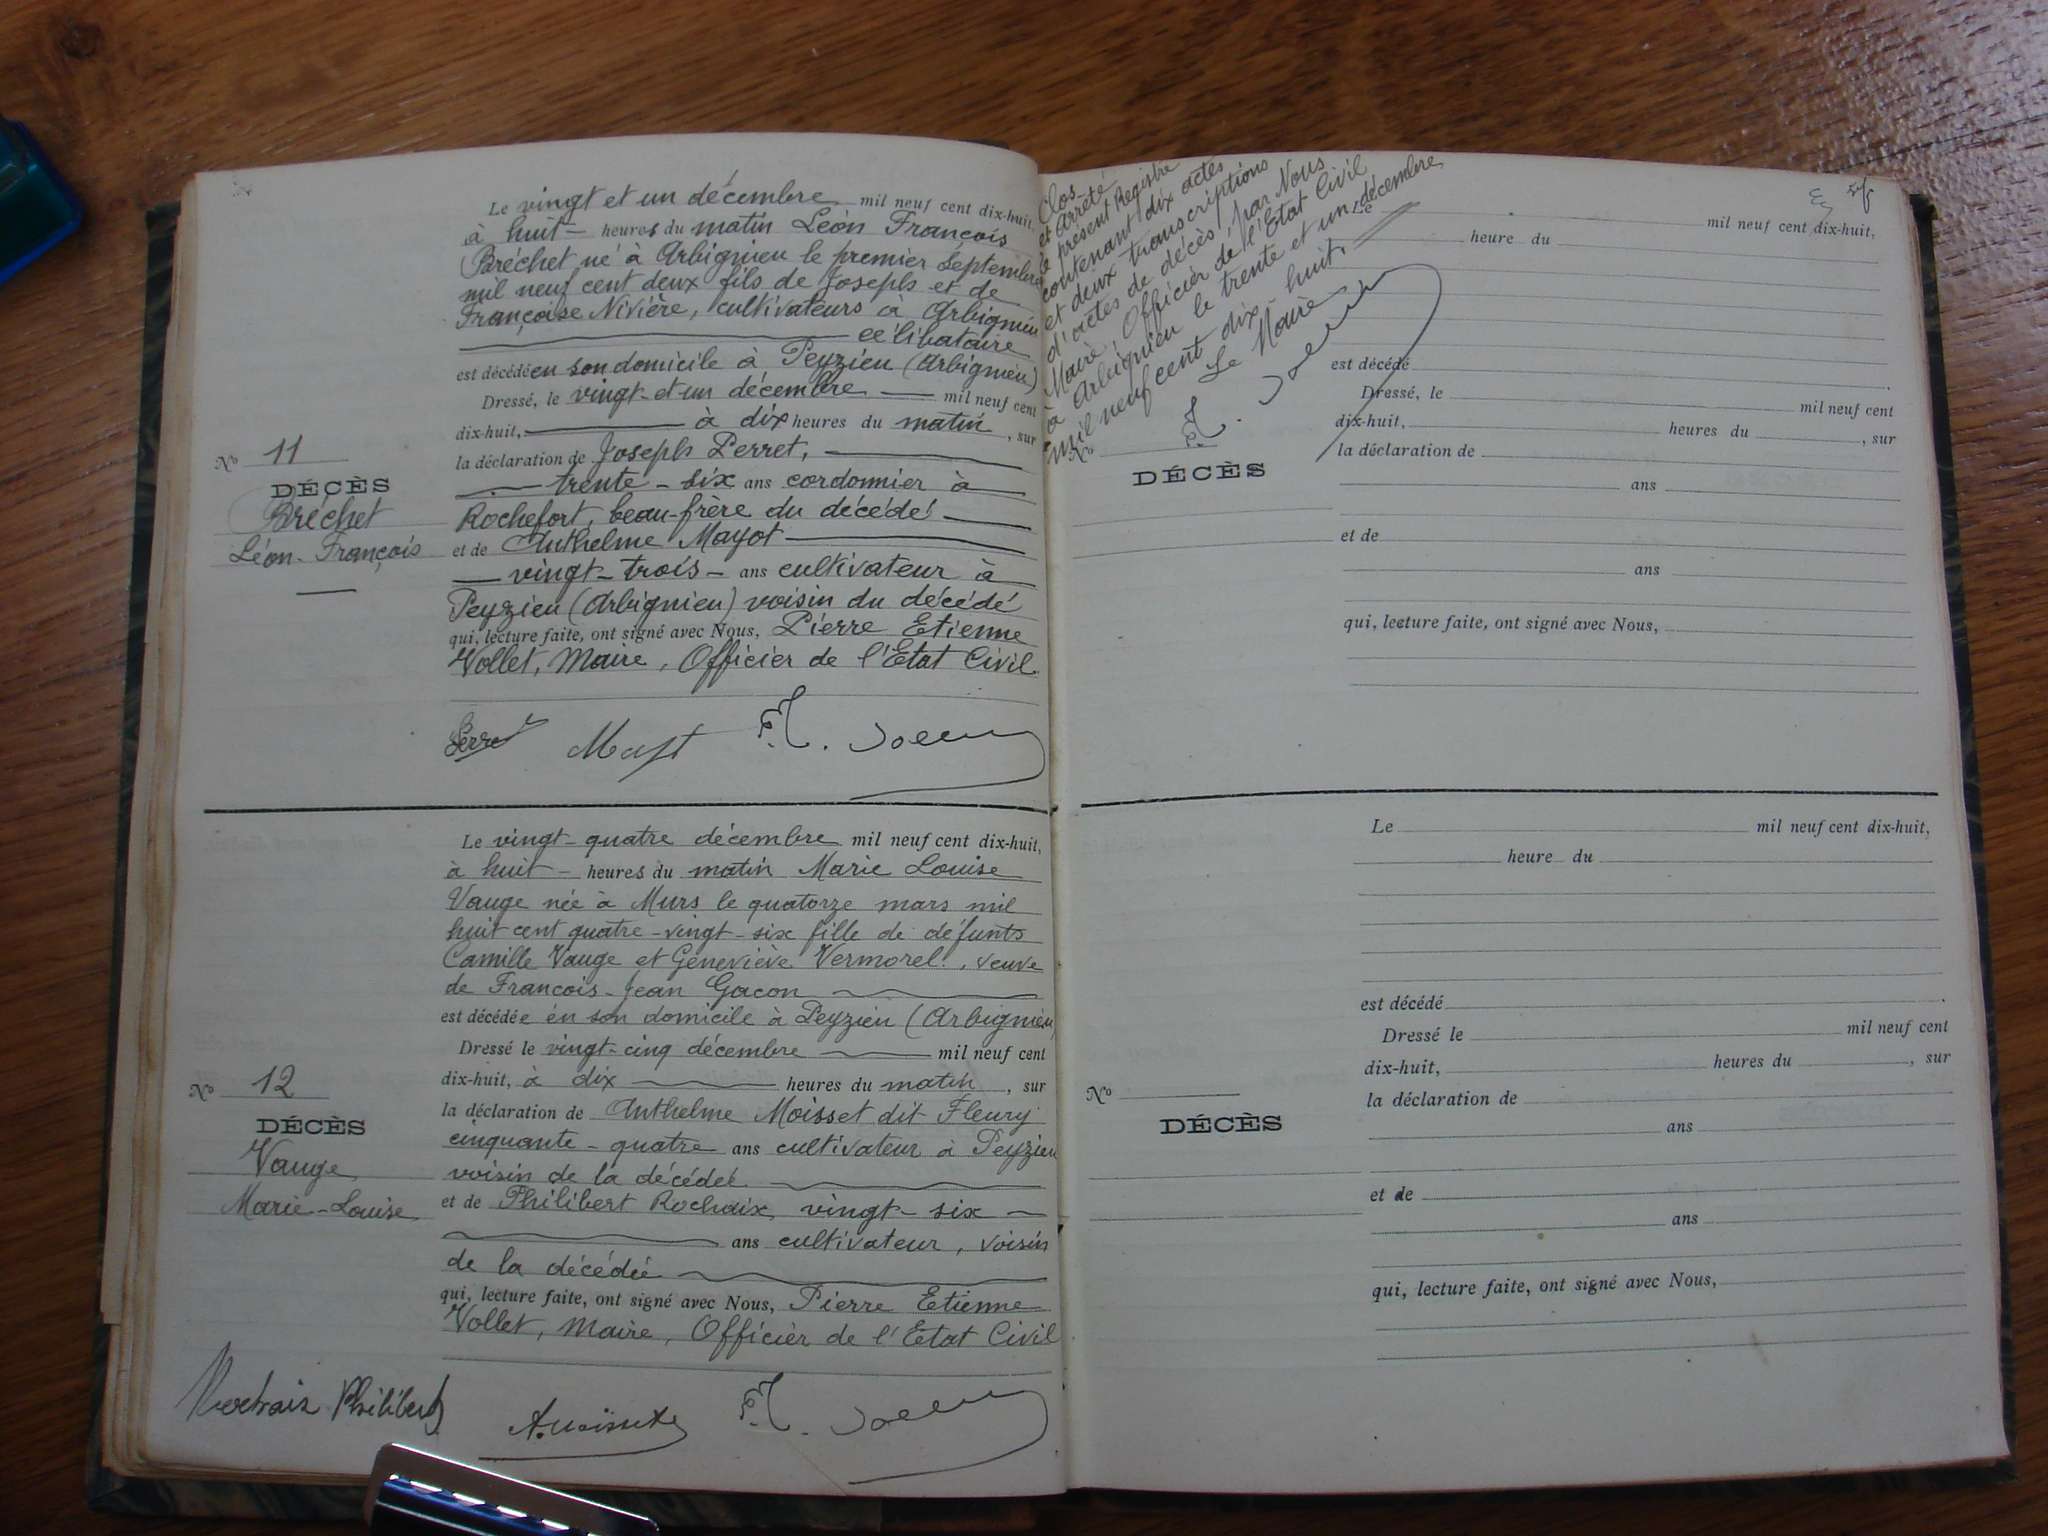 Le vingt et un décembre mil neuf cent dix-huit,
à huit heures du matin Léon François
Bréchet né à Arbignieu le premier Septembre
mil neuf cent deux fils de Joseph et de
Françoise Nivière, cultivateurs à Arbignieu
célibataire
est décédé en son domicile à Peyzieu (Arbignieu)
Dressé, le vingt-et un décembre mil neuf cent
dix-huit, à dix heures du matin, sur
No 11
la déclaration de Joseph Perret,
trente-six ans cordonnier à
DÉCÈS
Bréchet
Léon-François
Rochefort, beau-frère du décédé
et de Anthelme Mayot
vingt-trois ans cultivateur à
Peyzieu (Arbignieu) voisin du décédé
qui, lecture faite, ont signé avec Nous, Pierre Etienne
Vollet, Maire, Officier de l'Etat Civil.
Perret
Le vingt-quatre décembre mil neuf cent dix-huit,
à huit heures du matin Marie Louise
Vauge née à Murs le quatorze mars mil
huit cent quatre-vingt-six fille de défunts
Camille Vauge et Geneviève Vermorel, veuve
de François-Jean Gacon
est décédée en son domicile à Peyzieu (Arbignieu
Dressé le vingt-cinq décembre mil neuf cent
dix-huit, à dix heures du matin, sur
No 12
la déclaration de Anthelme Moisset dit Fleury
DÉCÈS
Vauge
Marie-Louise
cinquante-quatre ans cultivateur à Peyzieu
voisin de la décédée
et de Philibert Rochaix vingt-six
ans cultivateur, voisin
de la décédée
qui, lecture faite, ont signé avec Nous, Pierre Etienne
Vollet, Maire, Officier de l'Etat Civil
Rochaix Philibert
A. Moisset
Clos
et Arrêté
le présent Registre
contenant dix actes
et deux transcriptions
d'actes de décès, par Nous
Maire, Officier de l'Etat Civil
à Arbignieu le trente et un décembre
mil neuf cent dix huit.
Le Maire
Le mil neuf cent dix-huit,
heure du
est décédé
Dressé, le mil neuf cent
dix-huit, heures du , sur
No
la déclaration de
DÉCÈS
ans
et de
ans
qui, lecture faite, ont signé avec Nous,
Le mil neuf cent dix-huit,
heure du
est décédé
Dressé le mil neuf cent
dix-huit, heures du , sur
No
la déclaration de
DÉCÈS
ans
et de
ans
qui, lecture faite, ont signé avec Nous,